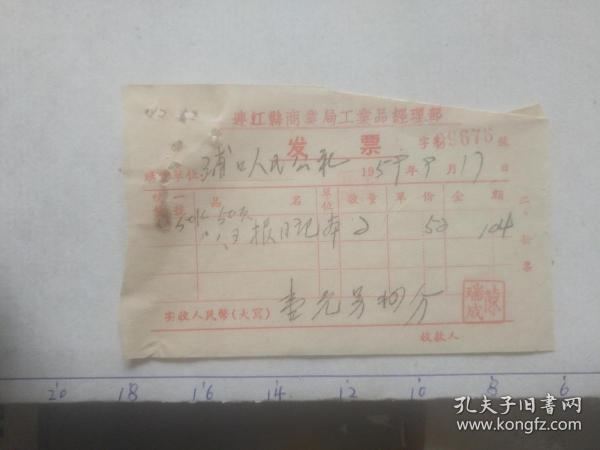 連江縣商業局工業品經理部
发票 字第 09676 號
購貨單位 埔口人民公社 1959年9月17日
品名 單位 數量 單價 金額
50K 50页
日記 本 2 52 104
二、發票
实收人民幣(大写) 壹元另肆分
陳瑞成
收款人
20 18 16 14 12 10 8 6
孔夫子旧書网
www.kongfz.com